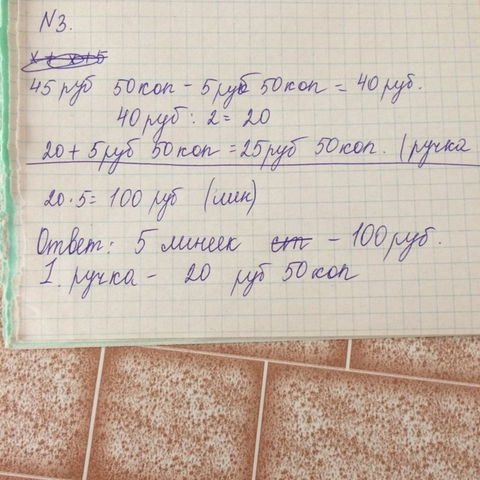 N3.
x + x + 5
45 руб 50 коп - 5 руб 50 коп = 40 руб.
40 руб : 2 = 20
20 + 5 руб 50 коп = 25 руб 50 коп. (ручка
20 · 5 = 100 руб (лин)
Ответ: 5 линеек ст - 100 руб.
1. ручка - 20 руб 50 коп